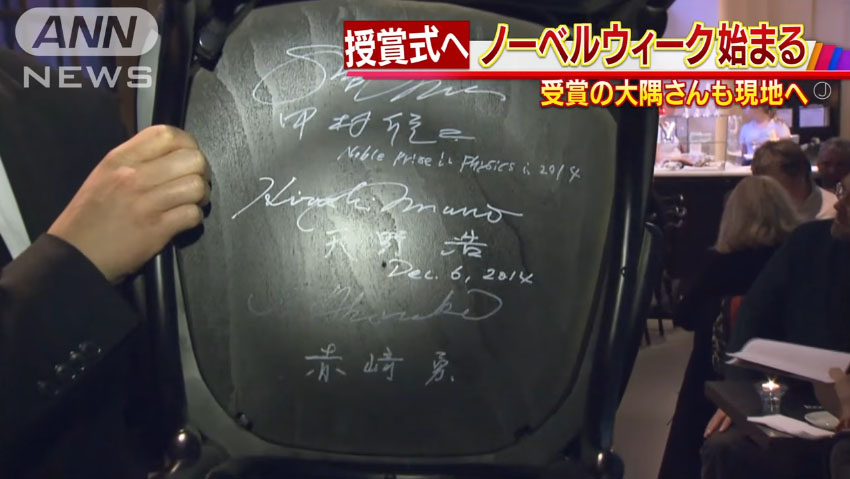 ANN
NEWS
授賞式へ
ノーベルウィーク始まる
受賞の大隅さんも現地へ
中村修二
Noble Prize in Physics in 2014
Hiroshi Amano
天野 浩
Dec. 6, 2014
赤﨑 勇